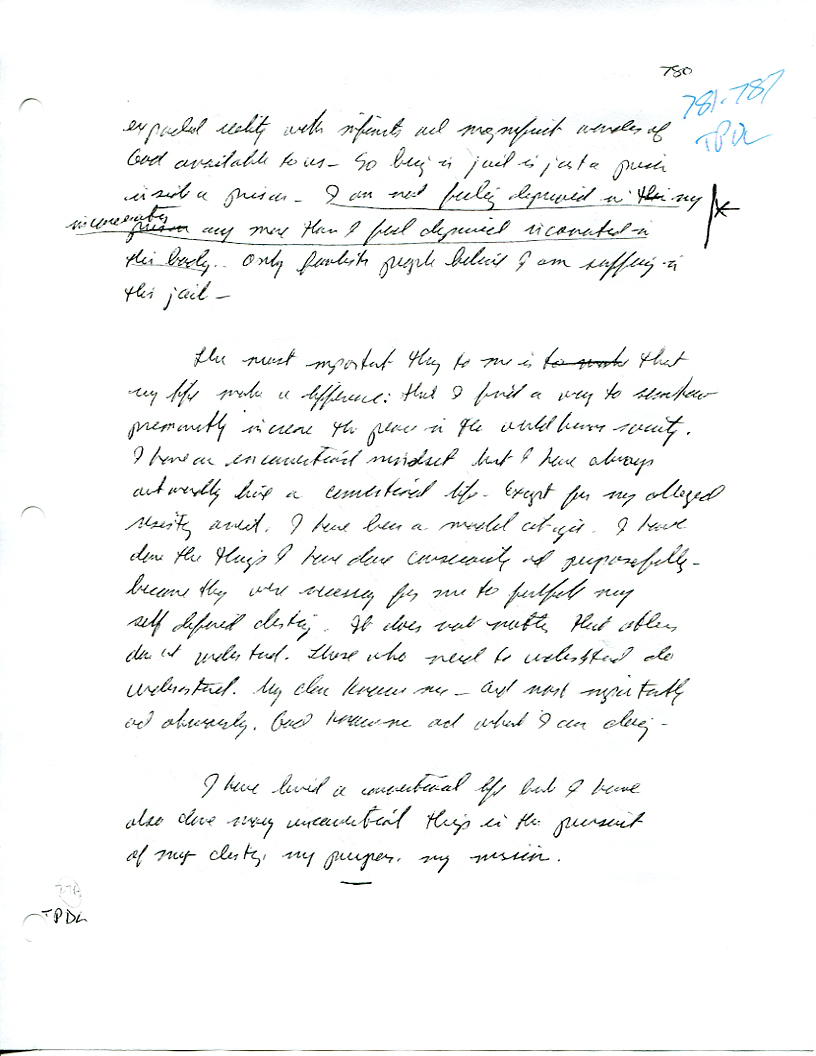 780
781-787
TPDL
expanded reality with infinite and magnificent wonders of
God available to us - So being in jail is just a prison
inside a prison - I am not feeling deprived in this my
incarceration
prison any more than I feel deprived incarnated in
this body.. Only people believe I am suffering in
this jail -
The most important thing to me is to make that
my life make a difference: that I find a way to somehow
permanently increase the peace in the world human society.
I have an unconventional mindset but I have always
outwardly live a conventional life - Except for my alleged
arrest. I have been a model citizen. I have
done the things I have done consciously and purposefully -
because they were necessary for me to fulfill my
self defined destiny. It does not matter that others
don't understand. Those who need to understand do
understand. My knows me - and most importantly
and obviously. God knows me and what I am doing -
I have lived a conventional life but I have
also done many unconventional things in the pursuit
of my destiny, my purpose. my mission.
TPDL